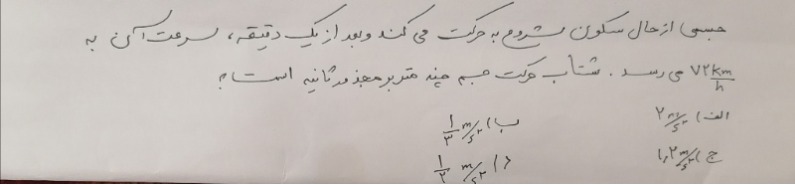 جسمی از حال سکون شروع به حرکت می کند و بعد از یک دقیقه، سرعت آن به
۷۲ km/h می رسد. شتاب حرکت جسم چند متر بر مجذور ثانیه است؟
الف) ۲ m/s² ب) ۱/۳ m/s²
ج) ۱٫۲ m/s² د) ۱/۲ m/s²